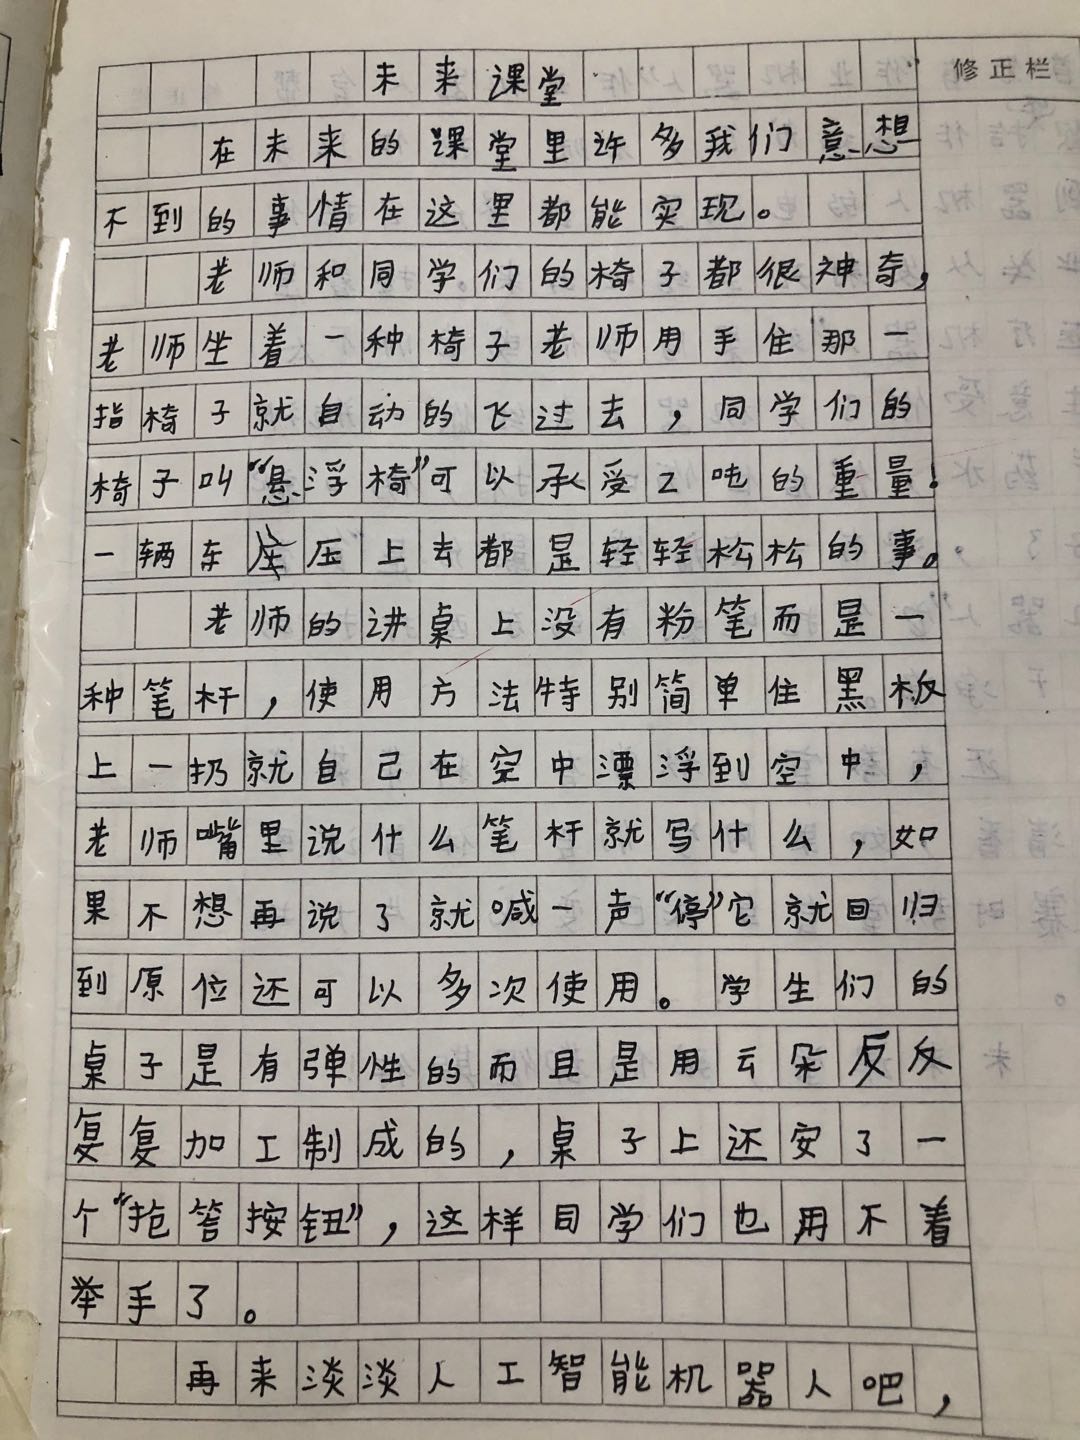 未来课堂
修正栏
在未来的课堂里许多我们意想
不到的事情在这里都能实现。
老师和同学们的椅子都很神奇，
老师坐着一种椅子老师用手住那一
指椅子就自动的飞过去，同学们的
椅子叫“悬浮椅”可以承受2吨的重量！
一辆车压上去都是轻轻松松的事。
老师的讲桌上没有粉笔而是一
种笔杆，使用方法特别简单住黑板
上一扔就自己在空中漂浮到空中，
老师嘴里说什么笔杆就写什么，如
果不想再说了就喊一声“停”它就回归
到原位还可以多次使用。学生们的
桌子是有弹性的而且是用云朵反反
复复加工制成的，桌子上还安了一
个“抢答按钮”，这样同学们也用不着
举手了。
再来淡淡人工智能机器人吧，